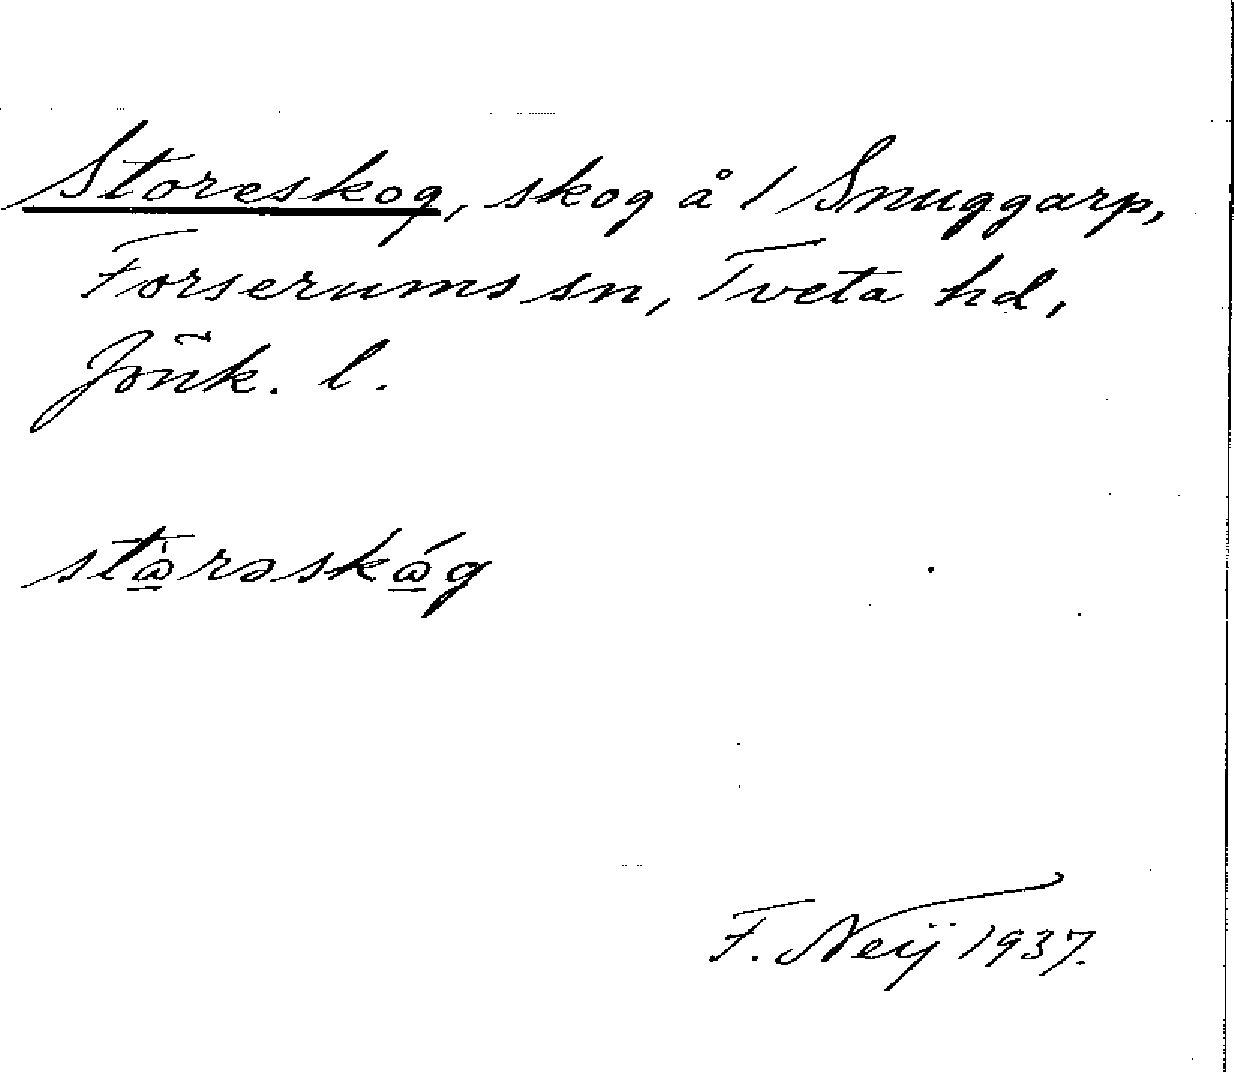 Storeskog, skog å 1 Snuggarp,
Forserums sn, Tveta hd,
Jönk. l.
stὼ̲rəskώ̲g
F. Neij 1937.